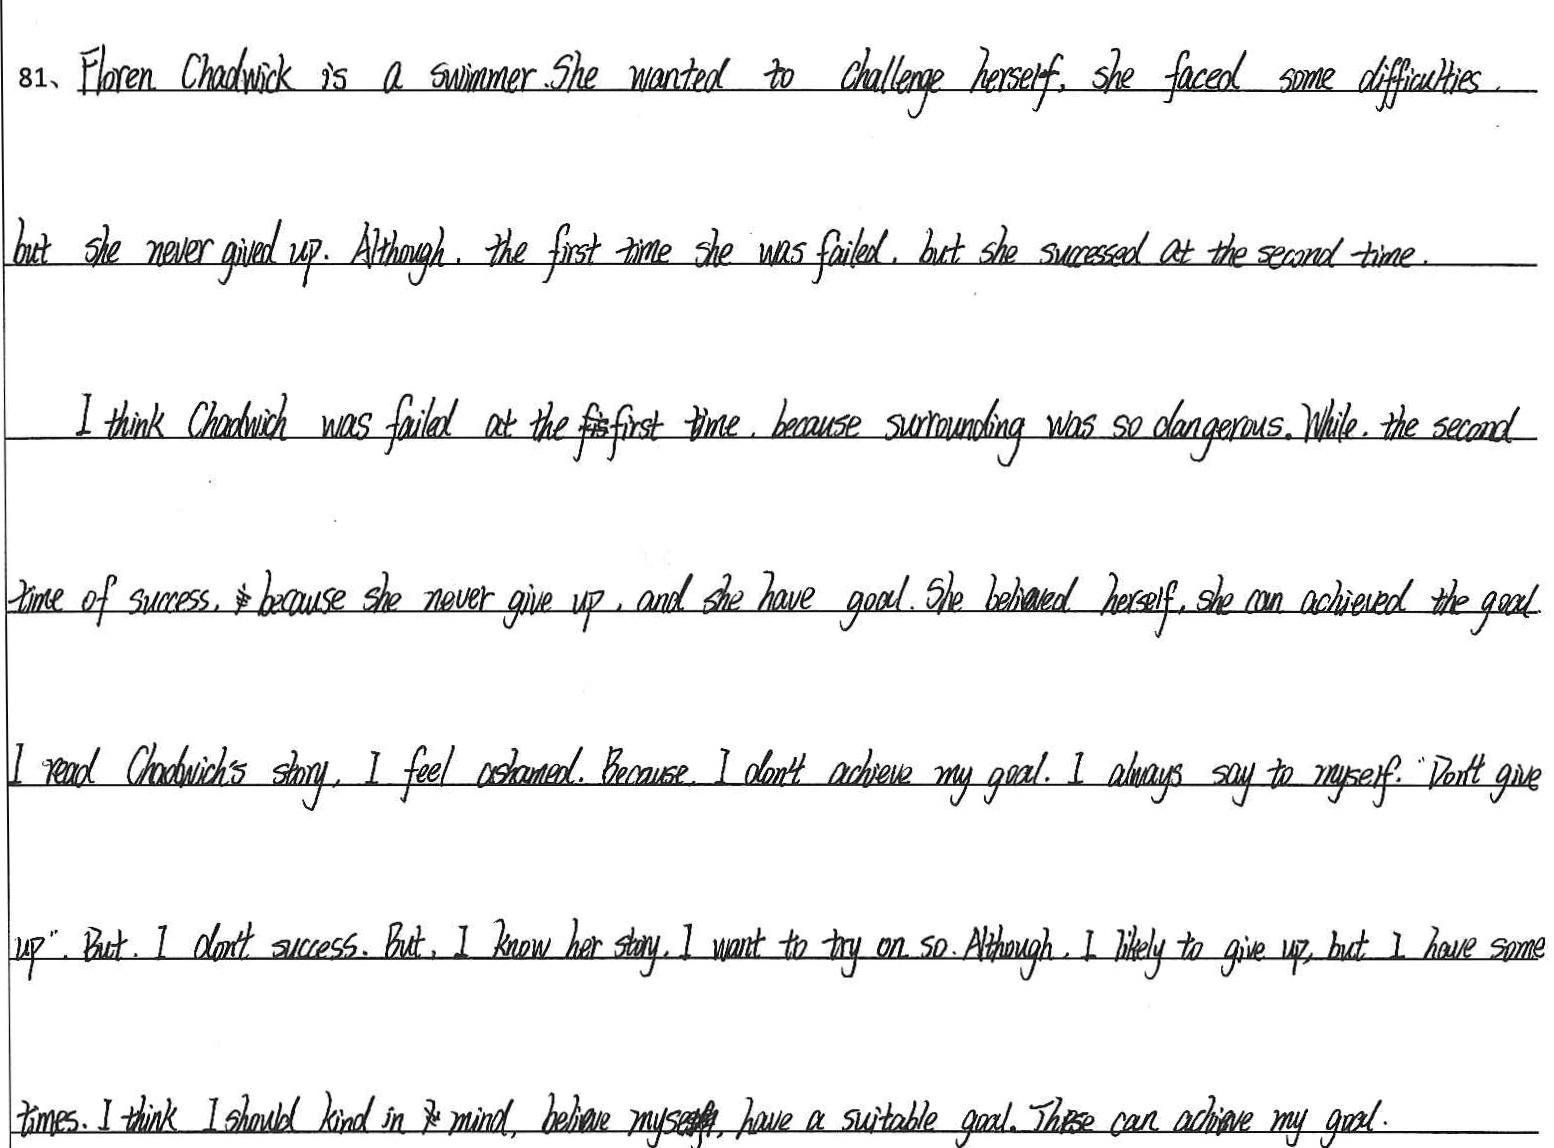 81、Floren Chadwick is a swimmer. She wanted to challenge herself, she faced some difficulties.
but she never gived up. Although, the first time she was failed, but she successed at the second time.
I think Chadwich was failed at the first time, because surrounding was so dangerous. While, the second
time of success, because she never give up, and she have goal. She belieaved herself, she can achieved the goal.
I read Chadwich's story, I feel ashamed. Because, I don't achieve my goal. I always say to myself. "Don't give
up". But. I don't success. But, I know her story, I want to try on so. Although, I likely to give up, but I have some
times. I think I should kind in mind, believe myself, have a suitable goal. These can achieve my goal.